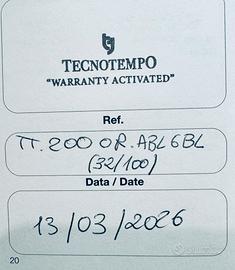 TECNOTEMPO
"WARRANTY ACTIVATED"
Ref.
TT.200 OR.ABL6BL
(32/100)
Data / Date
13/03/2026
20